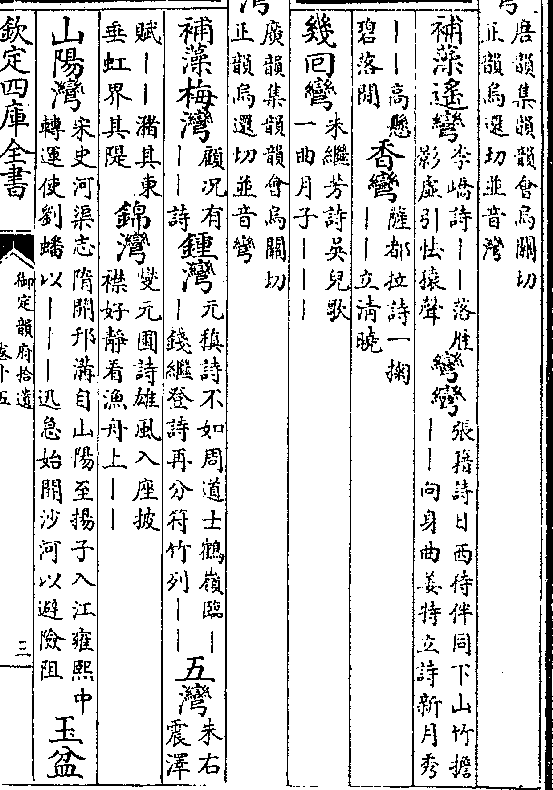 唐韻集韻韻會烏關切
正韻烏還切並音灣
補藻遙彎李嶠詩——落雁
影虛引怯猿聲
彎彎張籍詩日西待伴同下山竹擔
——向身曲姜特立詩新月秀
——高懸
碧落間
香彎薩都拉詩一掬
——立清曉
幾回彎朱繼芳詩吳兒歌
一曲月子———
廣韻集韻韻會烏關切
正韻烏還切並音彎
補藻梅灣顧況有
——詩
鍾灣元稹詩不如周道士鶴嶺臨—
—錢繼登詩再分符竹列——
五灣朱右
震澤
賦——潴其東
垂虹界其隄
錦灣燮元圃詩雄風入座披
襟好靜看漁舟上——
山陽灣宋史河渠志隋開邗溝自山陽至揚子入江雍熙中
轉運使劉蟠以———迅急始開沙河以避險阻
玉盆
欽定四庫全書
御定韻府拾遺
卷十五
三